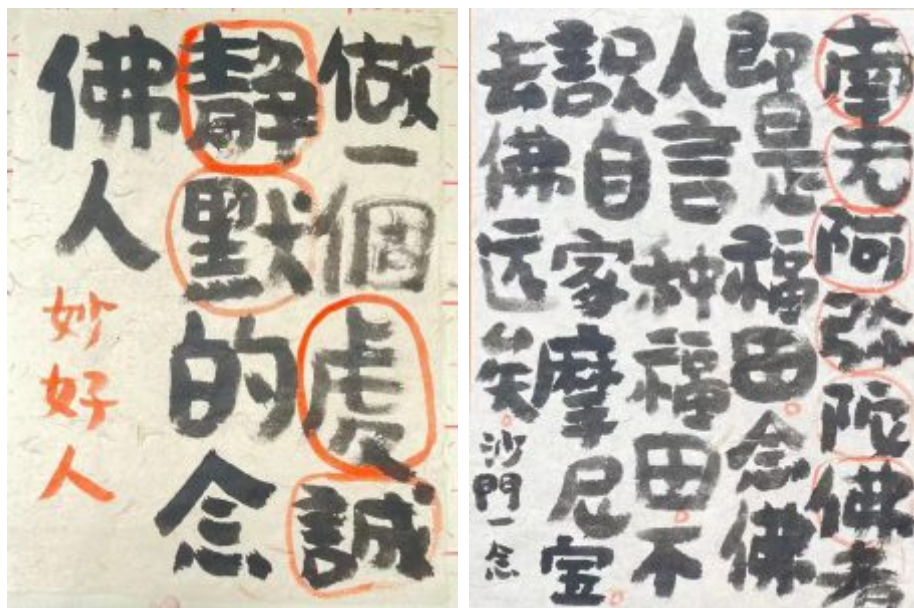 做一個虔誠
静默的念
佛人
妙好人
南无阿弥陀佛者
即是福田。念佛
人言种福田。不
識自家摩尼宝。
去佛远矣。
沙門一念